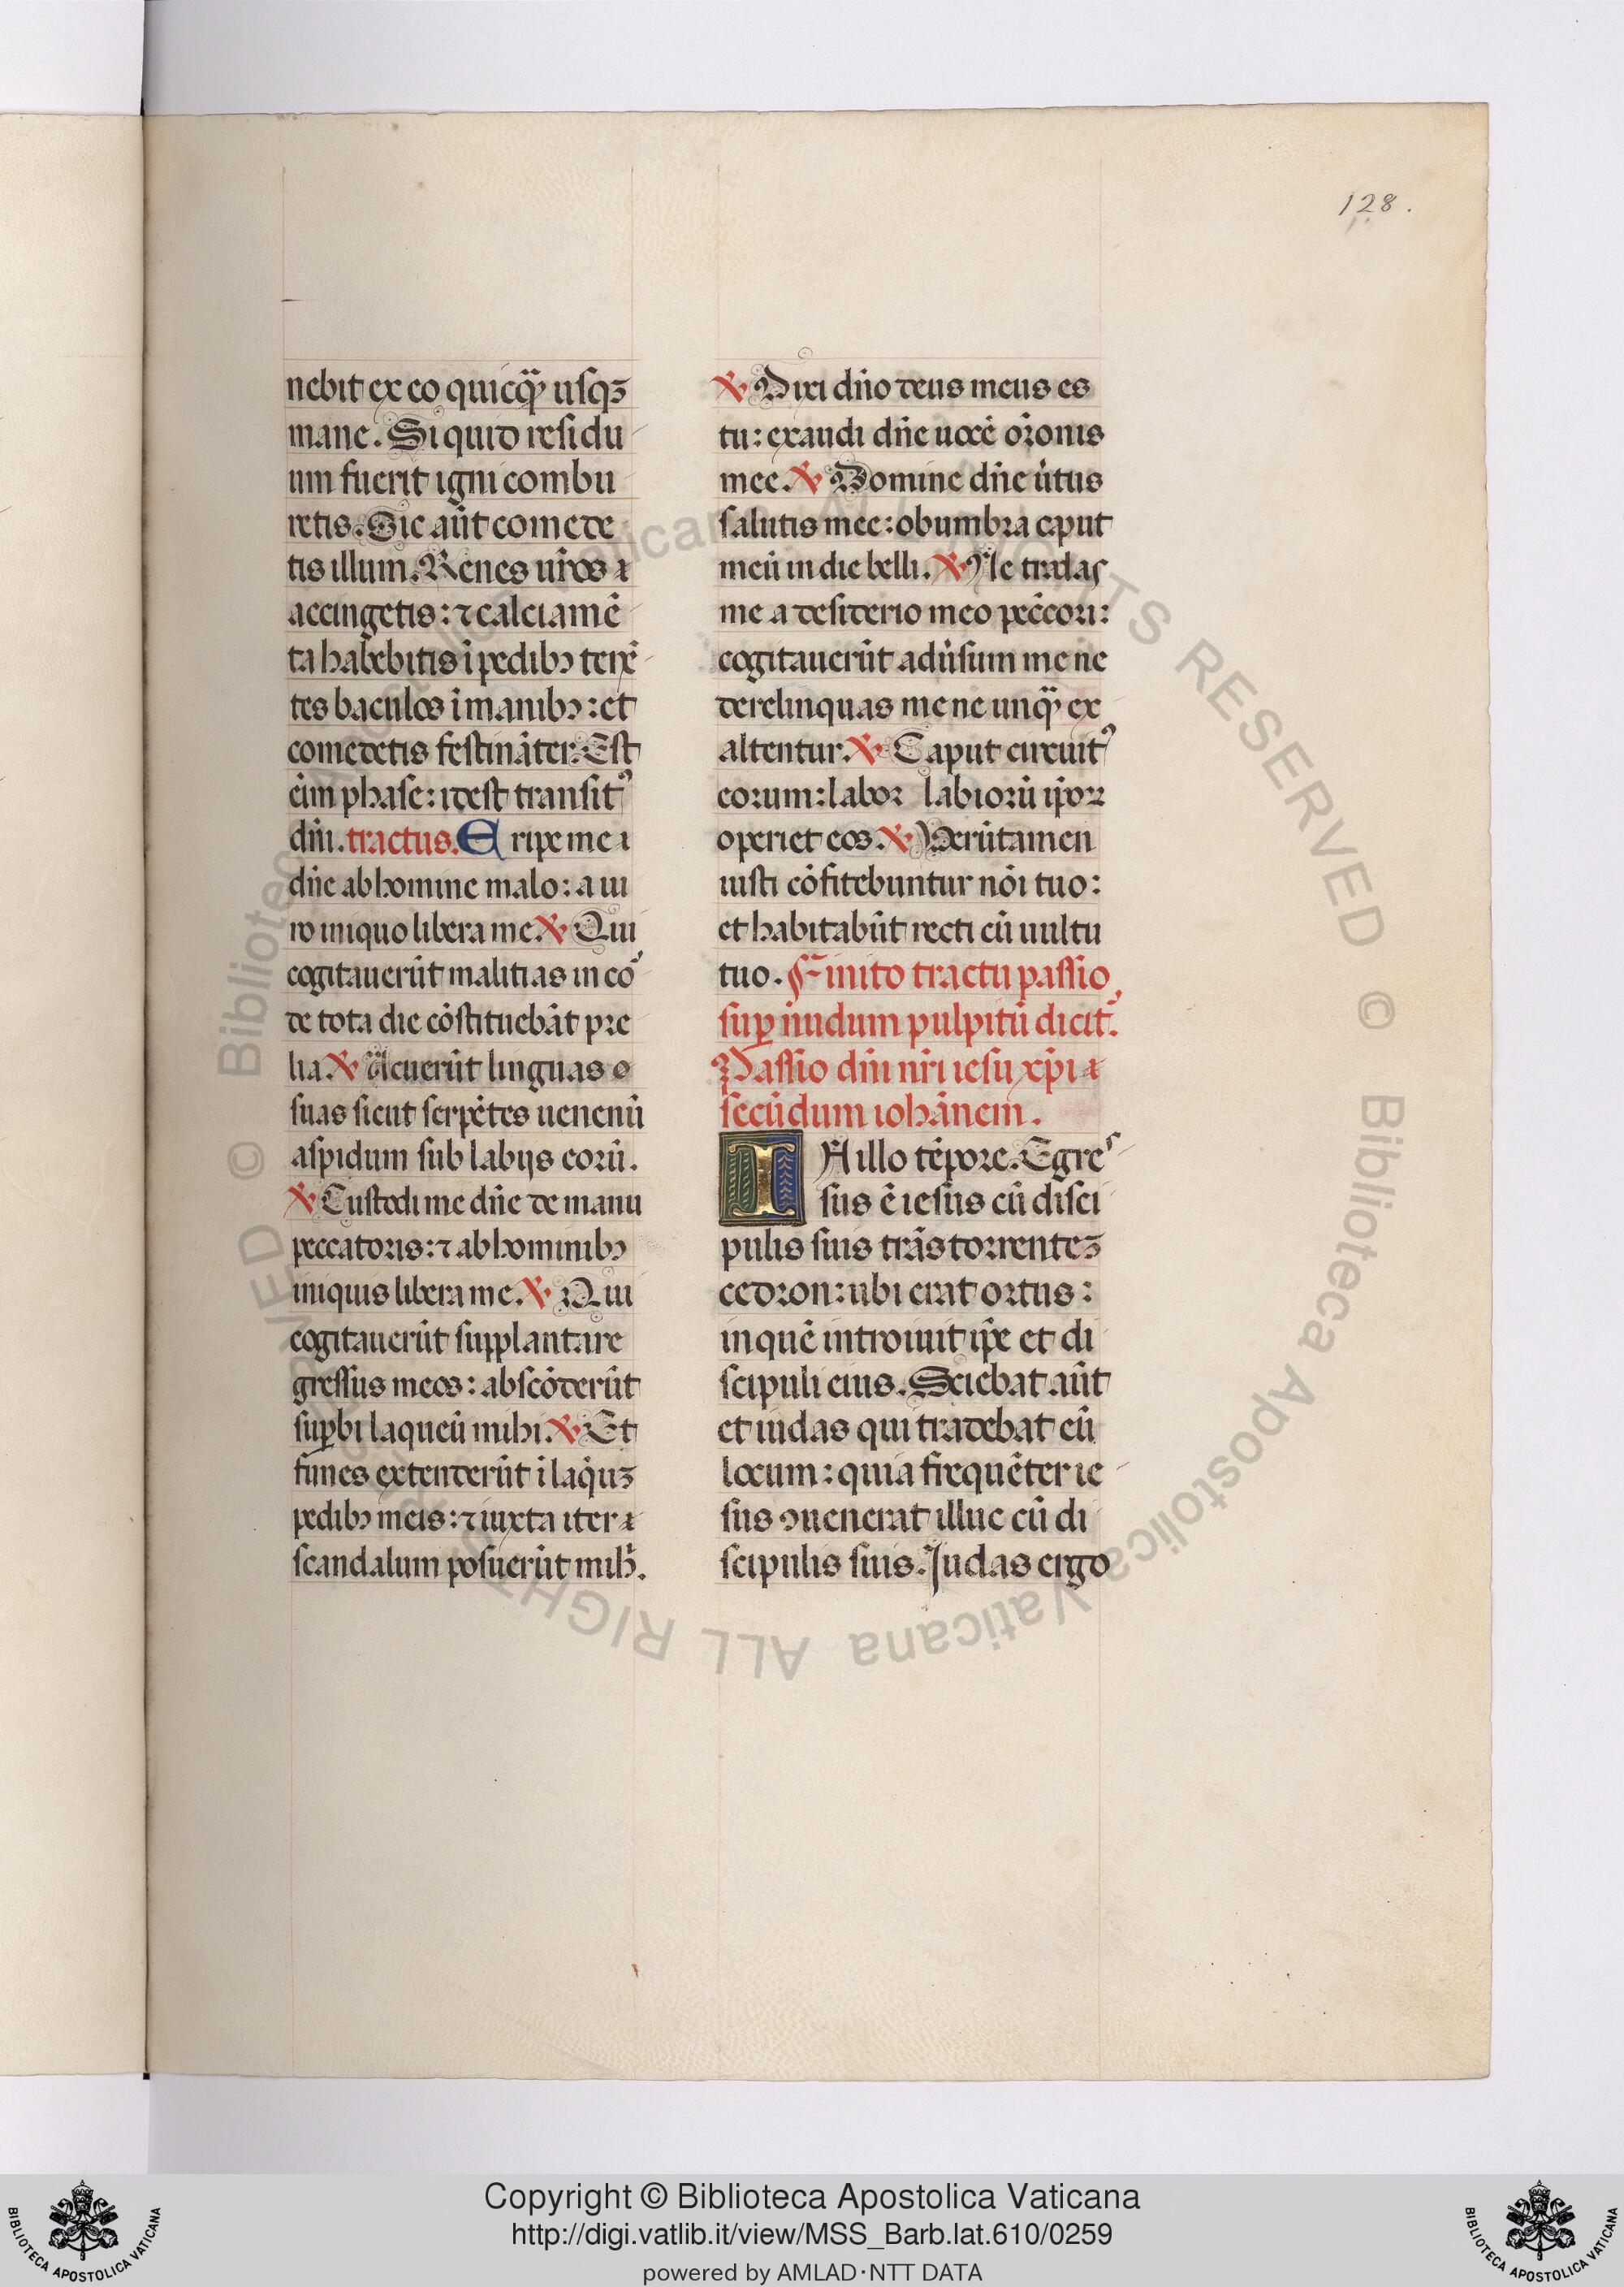 128.
nebit ex eo quicq̄ƺ usqƺ
mane. Si quid residu
um fuerit igni combu
retis. Sic aūt comede
tis illum. Renes ur̄os
accingetis: ⁊ calciamē
ta habebitis ī pedibꝰ tenē
tes baculos ī manibꝰ: et
comedetis festināter. Est
eīm phase: idest transitꝰ
dn̄i. tractus. Eripe me
dn̄e ab homine malo: a ui
ro iniquo libera me. ℣ Qui
cogitauerūt malitias in cor
de tota die cōstituebāt pre
lia. ℣ Acuerūt linguas
suas sicut serpētes uenenū
aspidum sub labijs eorū.
℣ Custodi me dn̄e de manu
peccatoris: ⁊ ab hominibꝰ
iniquis libera me. ℣ Qui
cogitauerūt supplantare
gressus meos: abscōderūt
suꝑbi laqueū mihi. ℣ Et
funes extenderūt ī laq̄uƺ
pedibꝰ meis: ⁊ iuxta iter
scandalum posuerūt mih̄.
℣ Dixi dn̄o deus meus es
tu: exaudi dn̄e uocē or̄onis
mee. ℣ Domine dn̄e ūtus
salutis mee: obumbra caput
meū in die belli. ℣ Ne tradas
me a desiderio meo pec̄cori:
cogitauerūt adūsum me ne
derelinquas me ne unq̄ƺ ex
altentur. ℣ Caput circuitꝰ
eorum: labor labiorū ip̄oꝝ
operiet eos. ℣ Verūtamen
iusti cōfitebuntur nōi tuo:
et habitabūt recti cū uultu
tuo. Finito tractu passio
suꝑ nudum pulpitū dicit̄.
Passio dn̄i nr̄i iesu xp̄i
secūdum iohānem.
IN illo tēpore. Egres
sus ē iesus cū disci
pulis suis trās torrenteƺ
cedron: ubi erat ortus:
in quē introiuit ip̄e et di
scipuli eius. Sciebat aūt
et iudas qui tradebat eū
locum: quia frequēter ie
sus ꝯuenerat illuc cū di
scipulis suis. Judas ergo
© Biblioteca Apostolica Vaticana ALL RIGHTS RESERVED © Biblioteca Apostolica Vaticana ALL RIGHTS RESERVED
Copyright © Biblioteca Apostolica Vaticana
http://digi.vatlib.it/view/MSS_Barb.lat.610/0259
powered by AMLAD·NTT DATA
BIBLIOTECA APOSTOLICA VATICANA
BIBLIOTECA APOSTOLICA VATICANA